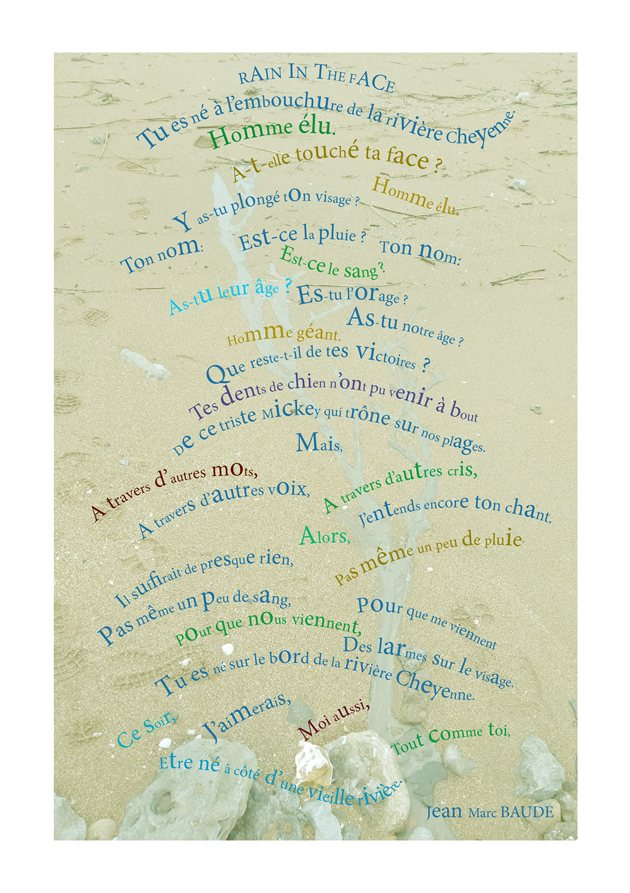 RAIN IN THE FACE
Tu es né à l'embouchure de la rivière cheyenne.
Homme élu.
A-t-elle touché ta face ?
Homme élu.
Y as-tu plongé tOn visage ?
Ton nom:
Est-ce la pluie ?
Ton nom:
Est-ce le sang?
As-tu leur âge ?
Es-tu l'orage ?
As-tu notre âge ?
Homme géant.
Que reste-t-il de tes victoires ?
Tes dents de chien n'ont pu venir à bout
De ce triste Mickey qui trône sur nos plages.
Mais,
A travers d'autres mots,
A travers d'autres voix,
A travers d'autres cris,
J'entends encore ton chant.
Alors,
Il suffirait de presque rien,
Pas même un peu de pluie
Pas même un peu de sang,
pour que me viennent
pour que nous viennent,
Des larmes sur le visage.
Tu es né sur le bord de la rivière Cheyenne.
Ce soir,
J'aimerais,
Moi aussi,
Tout comme toi,
Etre né à côté d'une vieille rivière.
Jean Marc BAUDE